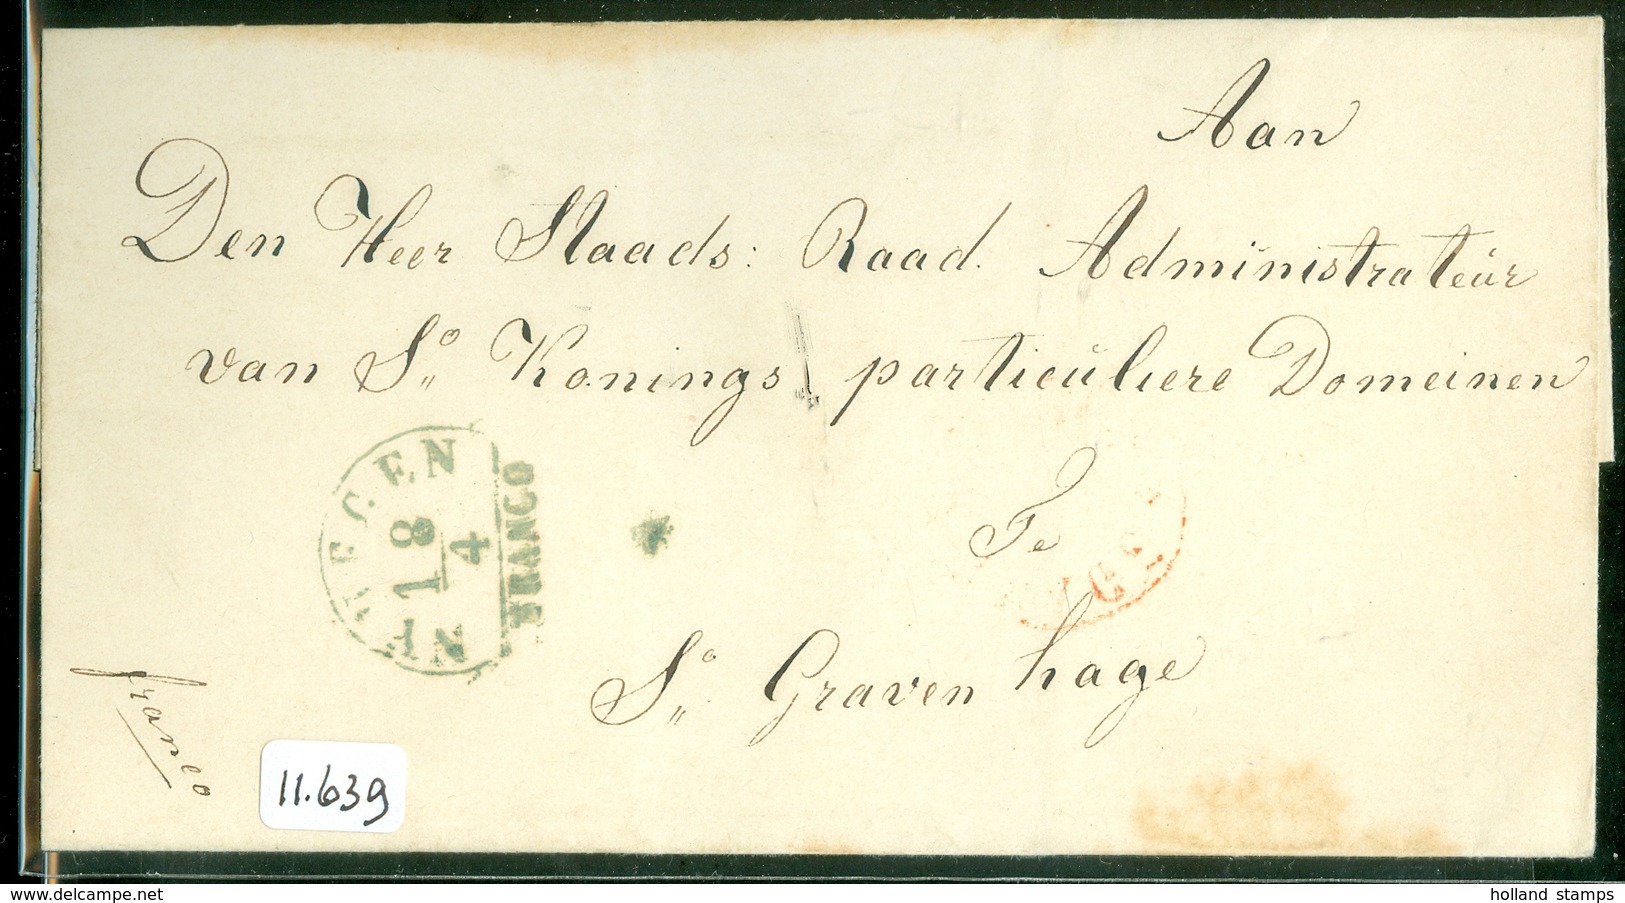 Aan
Den Heer Staads: Raad. Administrateur
van So Konings particuliere Domeinen
Te
So Graven hage
NYMEGEN
18
4
FRANCO
franco
11.639
delcampe.net
holland stamps